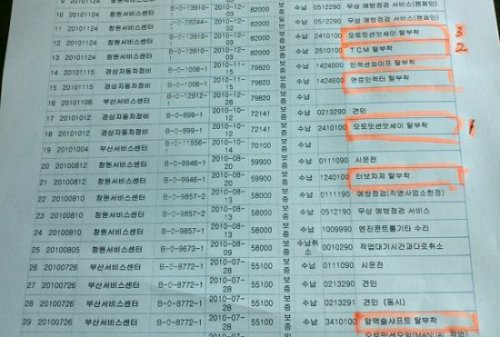 9 20101124 창원서비스센터 B-0-13910- 2010-12-03 82000 보증 수납 0512190 무상 예방점검 서비스(캠페인)
10 20101124 창원서비스센터 82000 수납 무상 예방점검 서비스(캠페인)
11 20101124 창원서비스센터 B-0-13910- 2010-12-03 82000 보증 수납 2410100 오토밋션앗세이 탈부착 3
12 20101124 창원서비스센터 B-0-13910- 2010-12-03 82000 보증 수납 2510100 TCM 탈부착 2
14 20101115 경상자동차정비 79820 보증 수납 1424600 인젝션파이프 탈부착
15 20101115 경상자동차정비 79820 보증 수납 탈부착
16 20101108 부산서비스센터 B-0-12812- 79820 수납
17 20101012 경상자동차정비 B-0-899-1 2010-10-12 72141 보증 수납 0213290 견인
18 20101012 경상자동차정비 B-0-899-1 2010-10-12 72141 보증 수납 2410100 오토밋션앗세이 탈부착
19 20101004 부산서비스센터 B-0-11556- 보증 수납
20 20100812 창원서비스센터 B-0-9946-1 2010-08-20 59900 보증 수납 0111090 시운전
21 20100812 창원서비스센터 B-0-9946-1 2010-08-20 59900 보증 수납 1240100 터보차져 탈부착
22 20100810 창원서비스센터 B-0-9857-2 2010-08-13 58000 보증 수납 0111190 예방점검(직영사업소한정)
23 20100810 창원서비스센터 B-0-9857-2 2010-08-13 58000 보증 수납 0512190 무상 예방점검 서비스
24 20100810 창원서비스센터 B-0-9857-1 2010-08-13 58000 보증 수납 1009990 엔진콘트롤기타 수리
25 20100805 창원서비스센터 B-0-9673-1 2010-08-09 58000 보증 수납취소 0010290 작업대기시간과다로취소
26 20100726 부산서비스센터 B-0-8772-1 2010-07-28 55100 보증 수납 0111090 시운전
27 20100726 부산서비스센터 B-0-8772-1 2010-07-28 55100 보증 수납 0213290 견인
28 20100726 부산서비스센터 B-0-8772-1 2010-07-28 55100 보증 수납 0213291 견인 (동시)
29 20100726 부산서비스센터 B-0-8772-1 2010-07-28 55100 보증 수납 3410100 앞액슬샤프트 탈부착